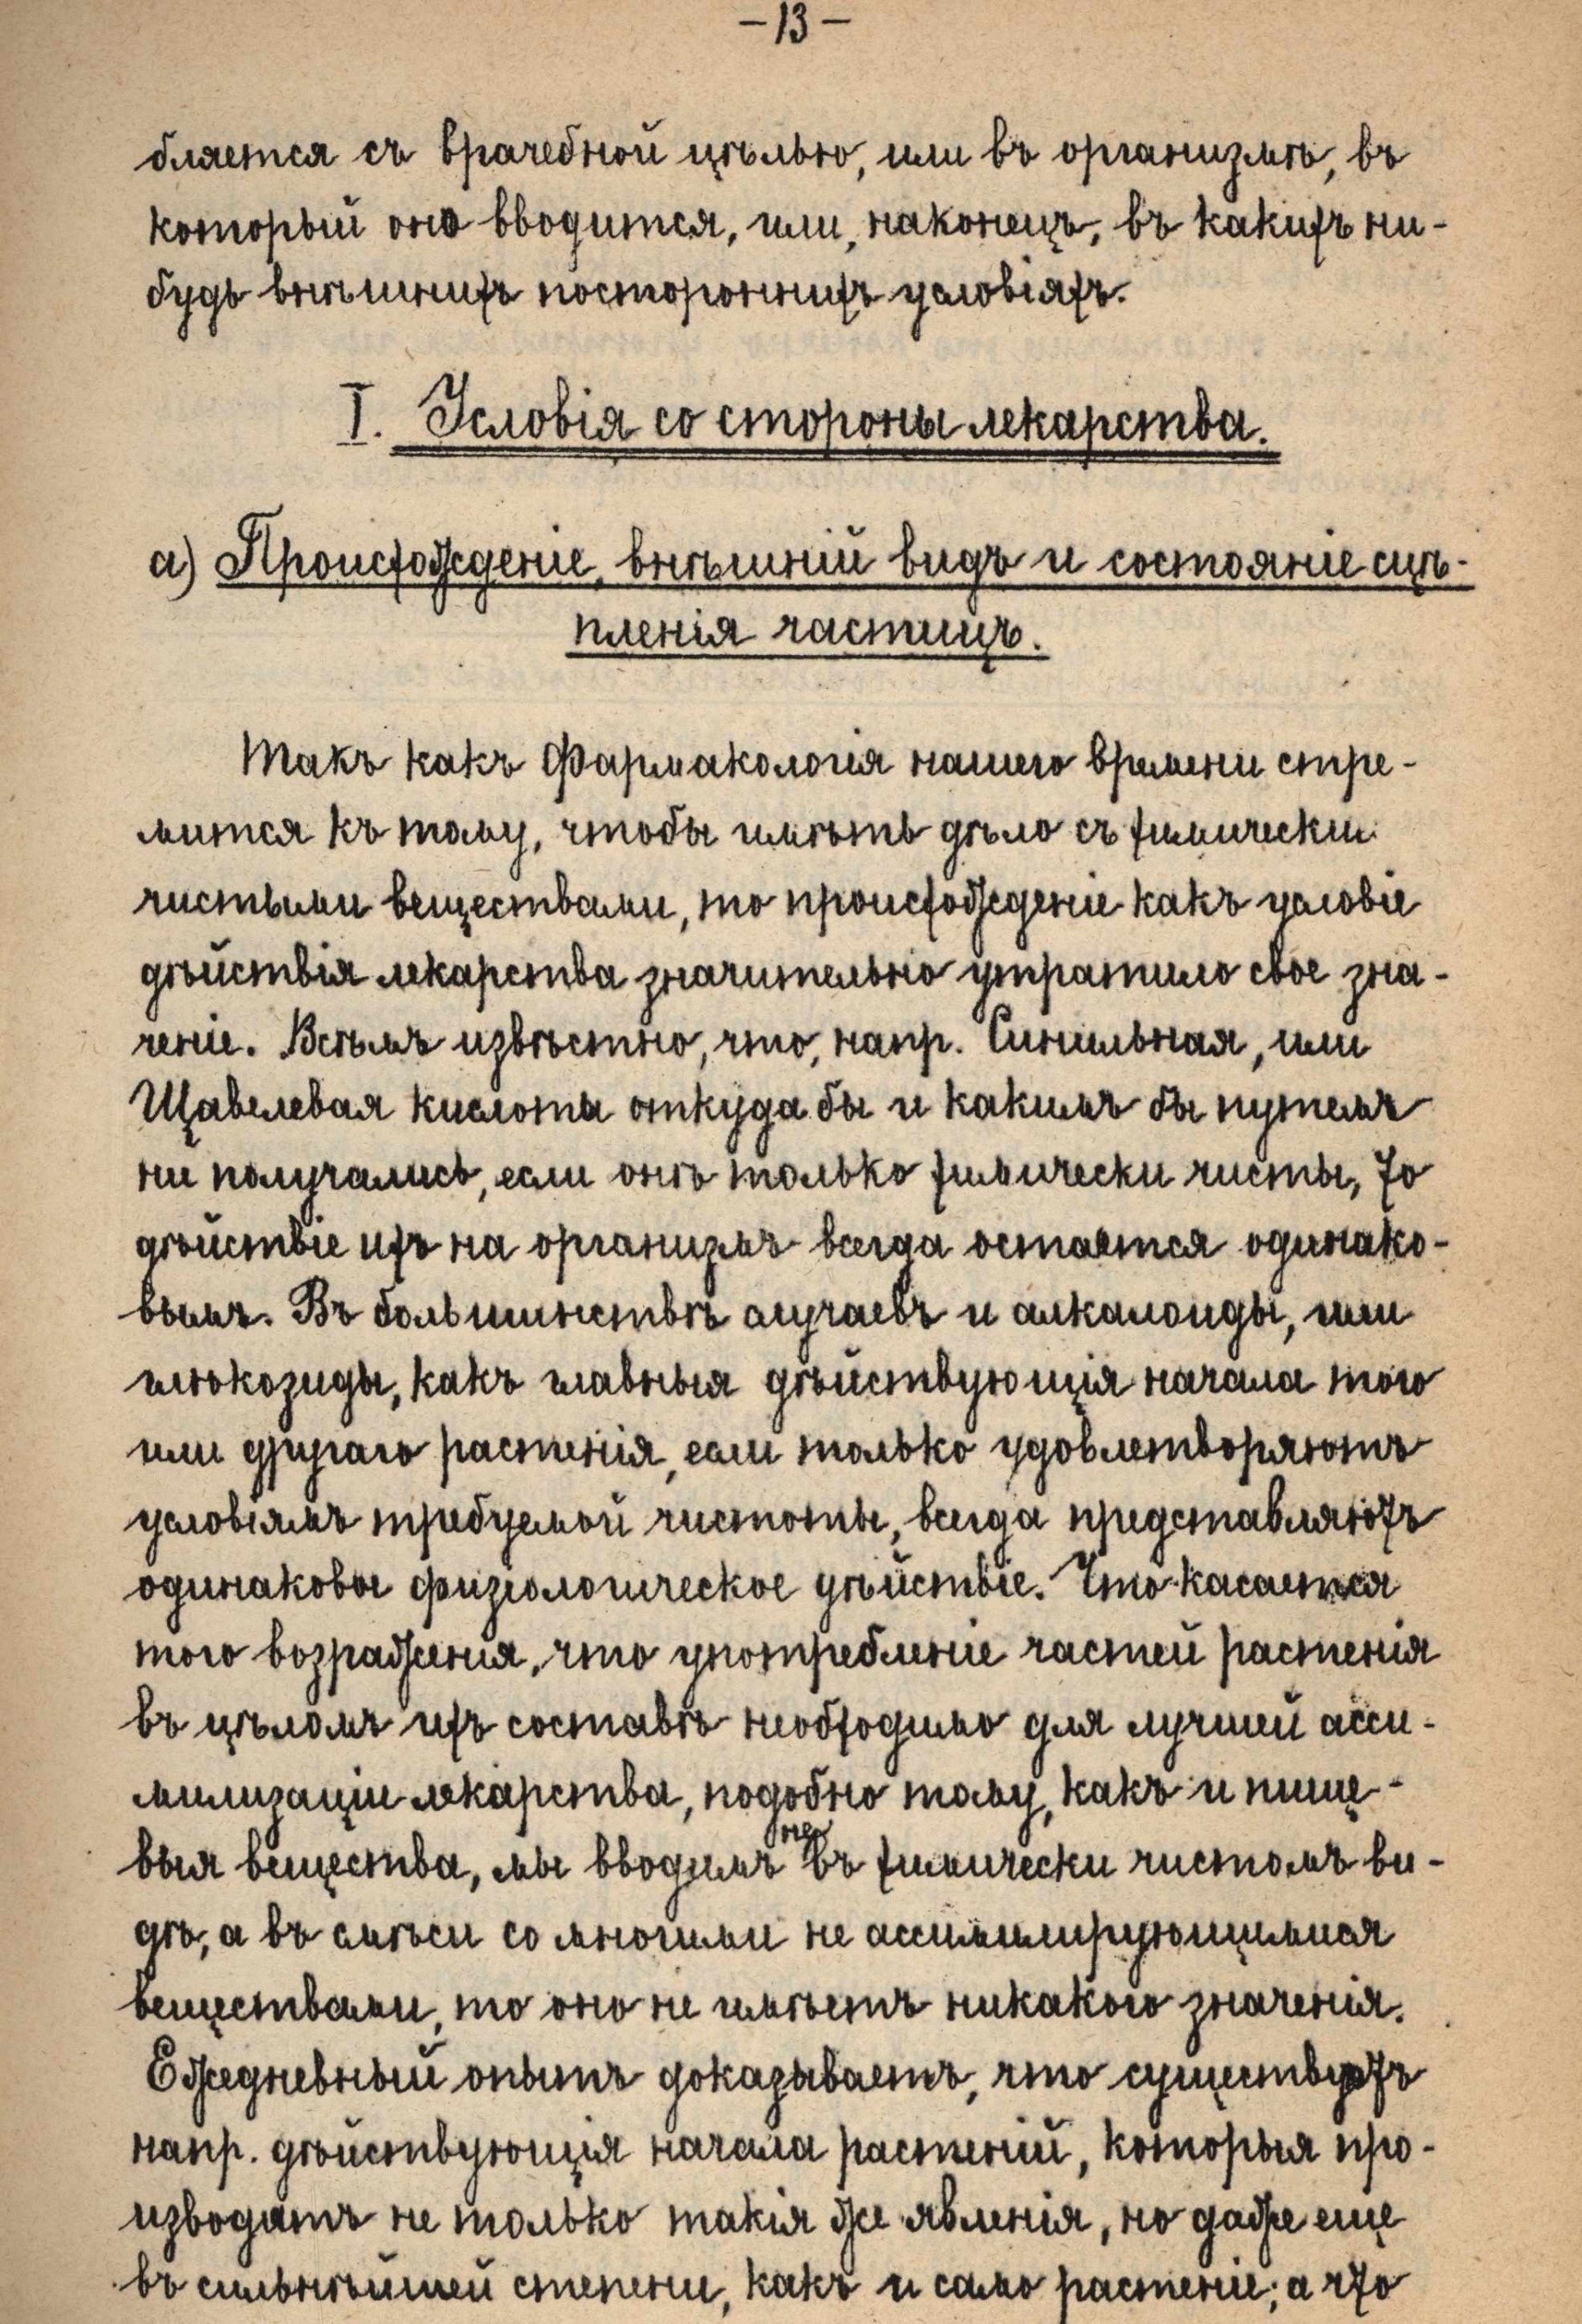 – 13 –
бляется съ врачебной цѣлью, или въ организмѣ, въ
который оно вводится, или, наконецъ, въ какихъ ни-
будь внѣшнихъ постороннихъ условіяхъ.
I. Условія со стороны лекарства.
а) Происхожденіе, внѣшній видъ и состояніе сцѣ-
пленія частицъ.
Такъ какъ Фармакологія нашего времени стре-
мится къ тому, чтобы имѣть дѣло съ химически
чистыми веществами, то происхожденіе какъ условіе
дѣйствія лекарства значительно утратило свое зна-
ченіе. Всѣмъ извѣстно, что, напр. Синильная, или
Щавелевая кислоты откуда бы и какимъ бы путемъ
ни получались, если онѣ только химически чисты, то
дѣйствіе ихъ на организмъ всегда остается одинако-
вымъ. Въ большинствѣ случаевъ и алкалоиды, или
глюкозиды, какъ главныя дѣйствующія начала того
или другаго растенія, если только удовлетворяютъ
условіямъ требуемой чистоты, всегда представляютъ
одинаковое физіологическое дѣйствіе. Что касается
того возраженія, что употребленіе частей растенія
въ цѣломъ ихъ составѣ необходимо для лучшей асси-
милизаціи лекарства, подобно тому, какъ и пище-
выя вещества, мы вводимъ не въ химически чистомъ ви-
дѣ, а въ смѣси со многими не ассимилирующимися
веществами, то оно не имѣетъ никакого значенія.
Ежедневный опытъ доказываетъ, что существуютъ
напр. дѣйствующія начала растеній, которыя про-
изводятъ не только такія же явленія, но даже еще
въ сильнѣйшей степени, какъ и само растеніе; а что